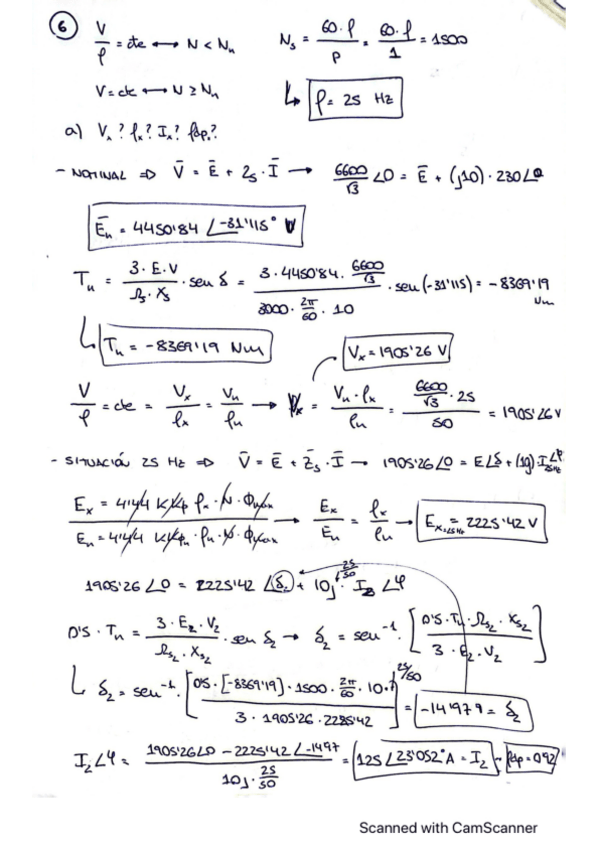 6 V/f = cte ⟷ N < Nn    Ns = 60·f/p = 60·f/1 = 1500
V = cte ⟷ N ≥ Nn    ↳ f = 25 Hz
a) Vx? fx? Ix? fdp?
- NOMINAL ⇒ V̄ = Ē + Zs·Ī → 6600/√3 ∠0 = Ē + (j10)·230∠0
Ēn = 4450'84 ∠-31'115° V
Tn = 3·E·V/Ωs·Xs · sen δ = 3·4450'84·6600/√3 / 3000·2π/60·10 · sen(-31'115) = -8369'19 Nm
↳ Tn = -8369'19 Nm    Vx = 1905'26 V
V/f = cte = Vx/fx = Vn/fn → Vx = Vn·fx/fn = 6600/√3·25 / 50 = 1905'26 V
- SITUACIÓN 25 Hz ⇒ V̄ = Ē + Z̄s·Ī → 1905'26 ∠0 = E∠δ + (10j)·I∠φ 25Hz
Ex = 4'44 fx·N·Φmax / En = 4'44 fn·N·Φmax → Ex/En = fx/fn → Ex,25Hz = 2225'42 V
1905'26 ∠0 = 2225'42 ∠δ + 10j·25/50·I2 ∠φ
0'5·Tn = 3·E2·V2/Ωs2·Xs2 · sen δ2 → δ2 = sen⁻¹·[0'5·Tn·Ωs2·Xs2 / 3·E2·V2]
↳ δ2 = sen⁻¹·[0'5·[-8369'19]·1500·2π/60·10·25/50 / 3·1905'26·2225'42] = -14'979 = δ2
I2∠φ = 1905'26∠0 - 2225'42∠-14'97 / 10j·25/50 = 125∠23'052° A = I2 - fdp = 0'92
Scanned with CamScanner